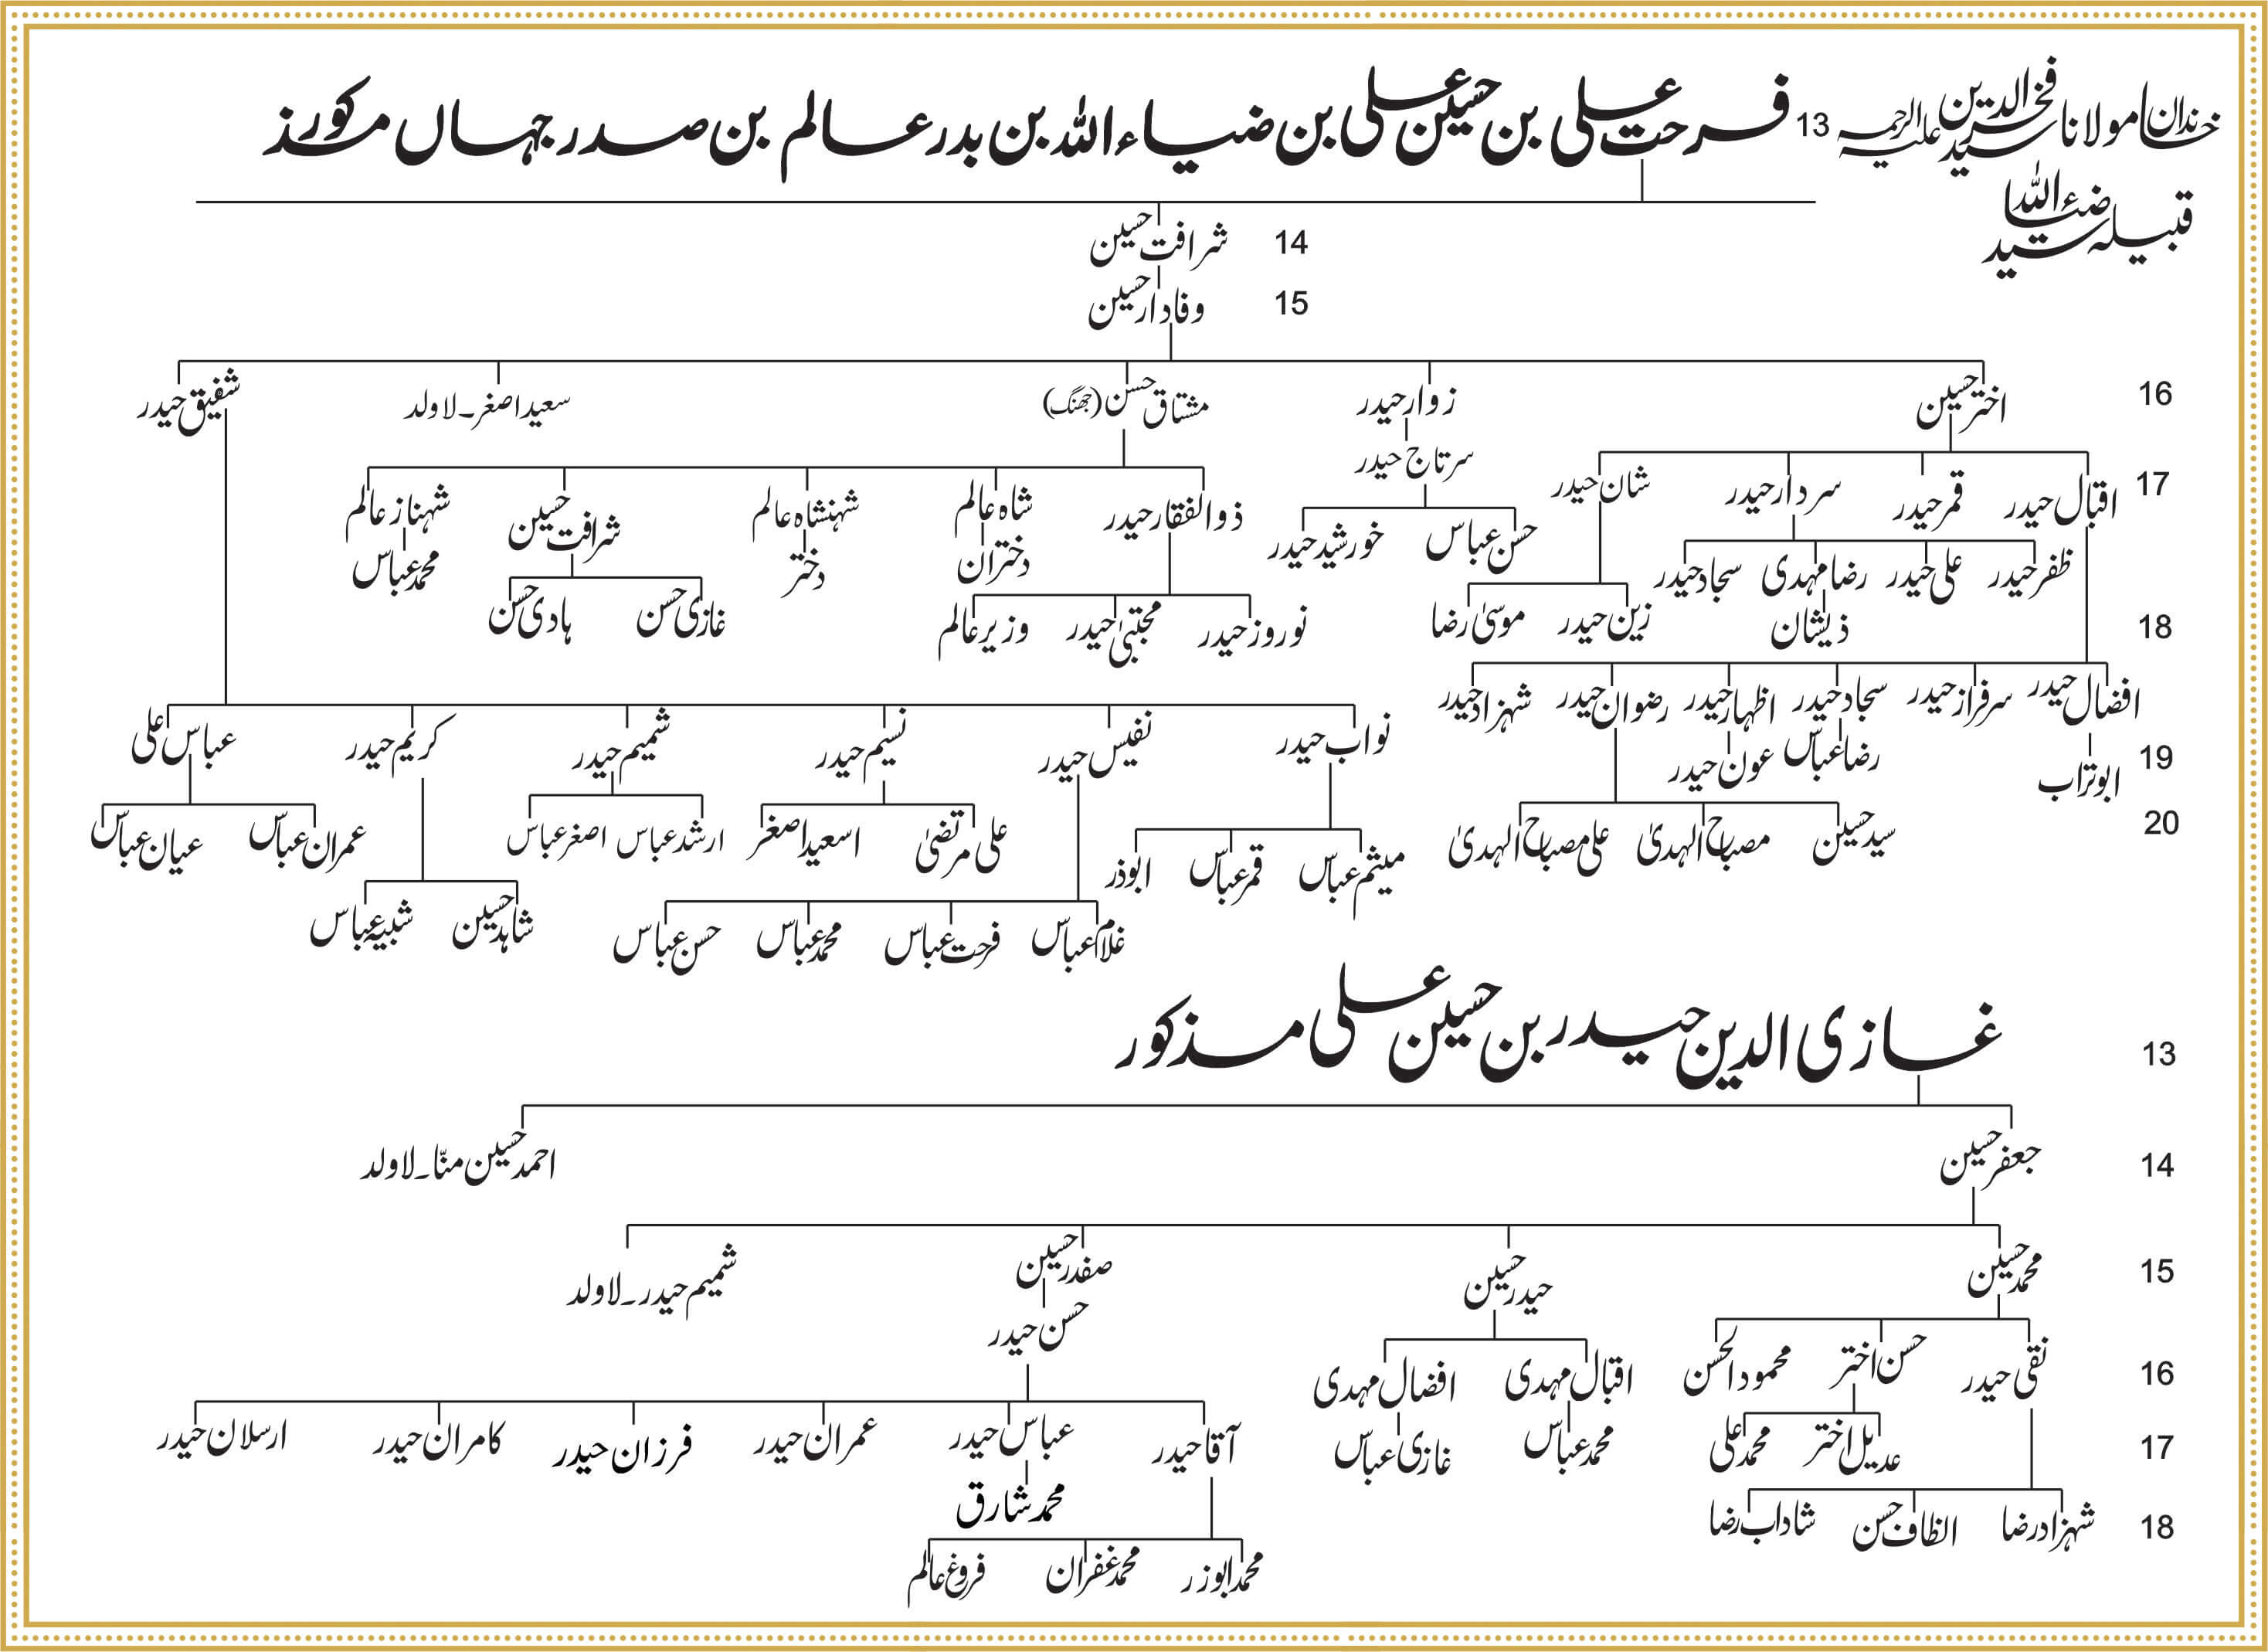 خاندان مولانا سید فخرالدین علیہ الرحمہ 13 فرحت علی بن حسین علی بن ضیاء اللہ بن بدر عالم بن صدر جہاں مذکور
قبیلہ سید ضیاء اللہ
شرافت حسین 14
وفادار حسین 15
اختر حسین زوار حیدر مشتاق حسن (جھنگ) سعید اصغر۔ لاولد شفیق حیدر 16
سرتاج حیدر
اقبال حیدر قمر حیدر سردار حیدر شان حیدر 17
ذوالفقار حیدر شاہ عالم شہنشاہ عالم شرافت حسین شہناز عالم
حسن عباس خورشید حیدر
دختران دختر محمد عباس
ظفر حیدر علی حیدر رضا مہدی سجاد حیدر
ذیشان زین حیدر موسیٰ رضا نوروز حیدر مجتبیٰ حیدر وزیر عالم غازی حسن ہادی حسن 18
افضال حیدر سرفراز حیدر سجاد حیدر اظہار حیدر رضوان حیدر شہزاد حیدر
نواب حیدر نفیس حیدر نسیم حیدر شمیم حیدر کریم حیدر عباس علی
ابوتراب رضا عباس عون حیدر 19
سید حسین مصباح الہدیٰ علی مصباح الہدیٰ 20
میثم عباس قمر عباس ابوذر علی مرتضیٰ اسعید اصغر ارشد عباس اصغر عباس عمران عباس عیان عباس
غلام عباس فرحت عباس محمد عباس حسن عباس شاہد حسین شبیہ عباس
غازی الدین حیدر بن حسین علی مذکور 13
جعفر حسین احمد حسین منّا۔ لاولد 14
محمد حسین حیدر حسین صفدر حسین شمیم حیدر۔ لاولد 15
حسن حیدر
نقی حیدر حسن اختر محمود الحسن اقبال مہدی افضال مہدی 16
عدیل اختر محمد علی محمد عباس غازی عباس آقا حیدر عباس حیدر عمران حیدر فرزان حیدر کامران حیدر ارسلان حیدر 17
محمد شارق
شہزاد رضا الطاف حسن شاداب رضا 18
محمد ابوزر محمد غفران فروغ عالم